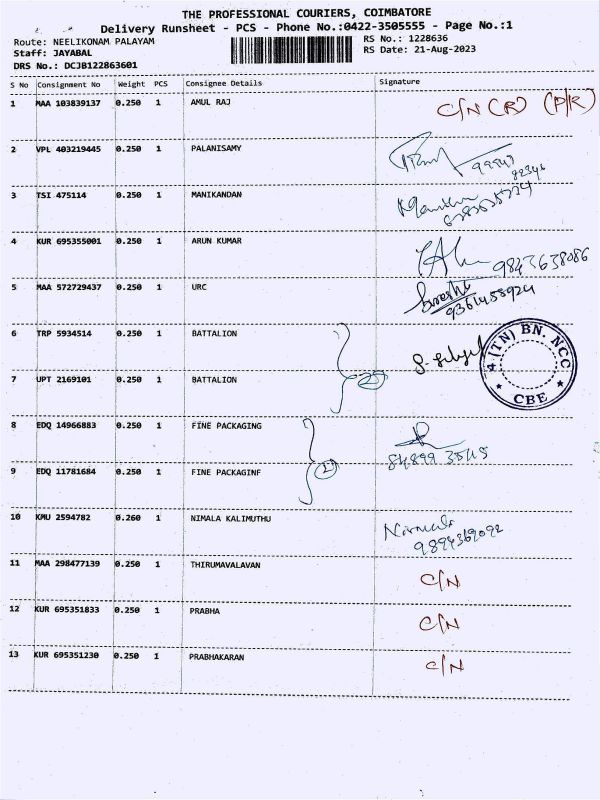 THE PROFESSIONAL COURIERS, COIMBATORE
Delivery Runsheet - PCS - Phone No.:0422-3505555 - Page No.:1
Route: NEELIKONAM PALAYAM RS No.: 1228636
Staff: JAYABAL RS Date: 21-Aug-2023
DRS No.: DCJB122863601
S No Consignment No Weight PCS Consignee Details Signature
1 MAA 103839137 0.250 1 AMUL RAJ C/N (R) (P/R)
2 VPL 403219445 0.250 1 PALANISAMY
3 TSI 475114 0.250 1 MANIKANDAN
4 KUR 695355001 0.250 1 ARUN KUMAR 9843638086
5 MAA 572729437 0.250 1 URC
9361458924
6 TRP 5934514 0.250 1 BATTALION
4 (TN) BN. NCC
CBE
7 UPT 2169101 0.250 1 BATTALION 2
8 EDQ 14966883 0.250 1 FINE PACKAGING
84899 35415
9 EDQ 11781684 0.250 1 FINE PACKAGINF 2
10 KMU 2594782 0.260 1 NIMALA KALIMUTHU Nirmala
9894369092
11 MAA 298477139 0.250 1 THIRUMAVALAVAN C/N
12 KUR 695351833 0.250 1 PRABHA C/N
13 KUR 695351230 0.250 1 PRABHAKARAN C/N